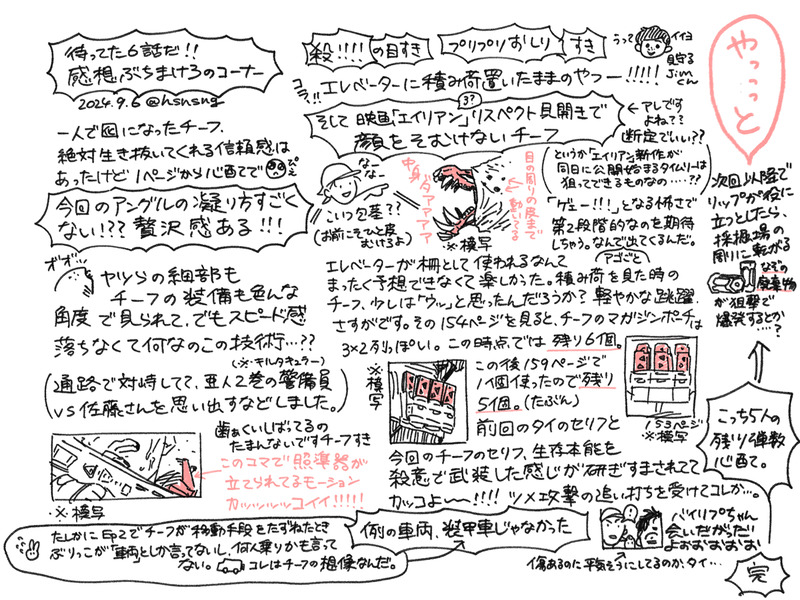 待ってた6話だ!!
感想ぶちまけろのコーナー
2024.9.6 @hsnsng
一人で囮になったチーフ、
絶対生き抜いてくれる信頼感は
あったけど1ページから心配で
今回のアングルの凝り方すごく
ない!?? 贅沢感ある!!!
オオ゛…
ヤツらの細部も
チーフの装備も色んな
角度で見られて、でもスピード感
落ちなくて何なのこの技術…??
(※・キルタキュラー)
通路で対峙してて、亜人2巻の警備員
VS佐藤さんを思い出すなどしました。
歯ぁくいしばってるの
たまんないですチーフすき
このコマで照準器が
立てられてるモーション
カッッッッッコイイ!!!!!
※模写
たしかにEP2でチーフが移動手段をたずねたとき
ぶりっこが「車両」としか言ってないし、何人乗りかも言って
ない。コレはチーフの想像なんだ。
殺!!!!の目すき
プリプリおしりすき
うって
イイヨ
見守る
Jimくん
コラ!!
エレベーターに積み荷置いたままのやつー!!!!!
そして映画「エイリアン3?」リスペクト見開きで
顔をそむけないチーフ
←アレです
よね??
断定でいい??
なーなー
こいつ包茎??
(お前こそひと皮
むけろよ)
中身
ダァァァァァ
目の周りの皮まで
動いてる
※模写
(というか「エイリアン」新作が
同日に公開始まるタイムリーは
狙ってできるものなの…??)
「ゲェー!!!」となる怖さで
第2段階的なのを期待
しちゃう。なんで出てくるんだ。
アゴごと
エレベーターが柵として使われるなんて
まったく予想できなくて楽しかった。積み荷を見た時の
チーフ、少しは「ウッ」と思ったんだろうか? 軽やかな跳躍、
さすがです。その154ページを見ると、チーフのマガジンポーチは
3×2列っぽい。この時点では残り6個。
※模写
この後159ページで
1個使ったので残り
5個。(たぶん)
153ページ
※模写
前回のタイのセリフと
今回のチーフのセリフ、生存本能を
殺意で武装した感じが研ぎすまされてて
カッコよ〜〜!!!! ツメ攻撃の追い打ちを受けてコレか…。
例の車両、装甲車じゃなかった
バイリプちゃん
会いだがっだ
よぉおおおお
傷あるのに平気そうにしてるのか、タイ…
やっっっと
次回以降で
リップが役に
立つとしたら、
採掘場の
周りに転がる
なぞの
廃棄物
が狙撃で
爆発するとか
…?
こっち5人の
残り弾数
心配で。
完